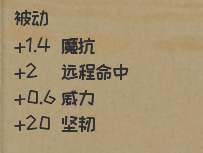 被动
+1.4 魔抗
+2 远程命中
+0.6 威力
+20 坚韧